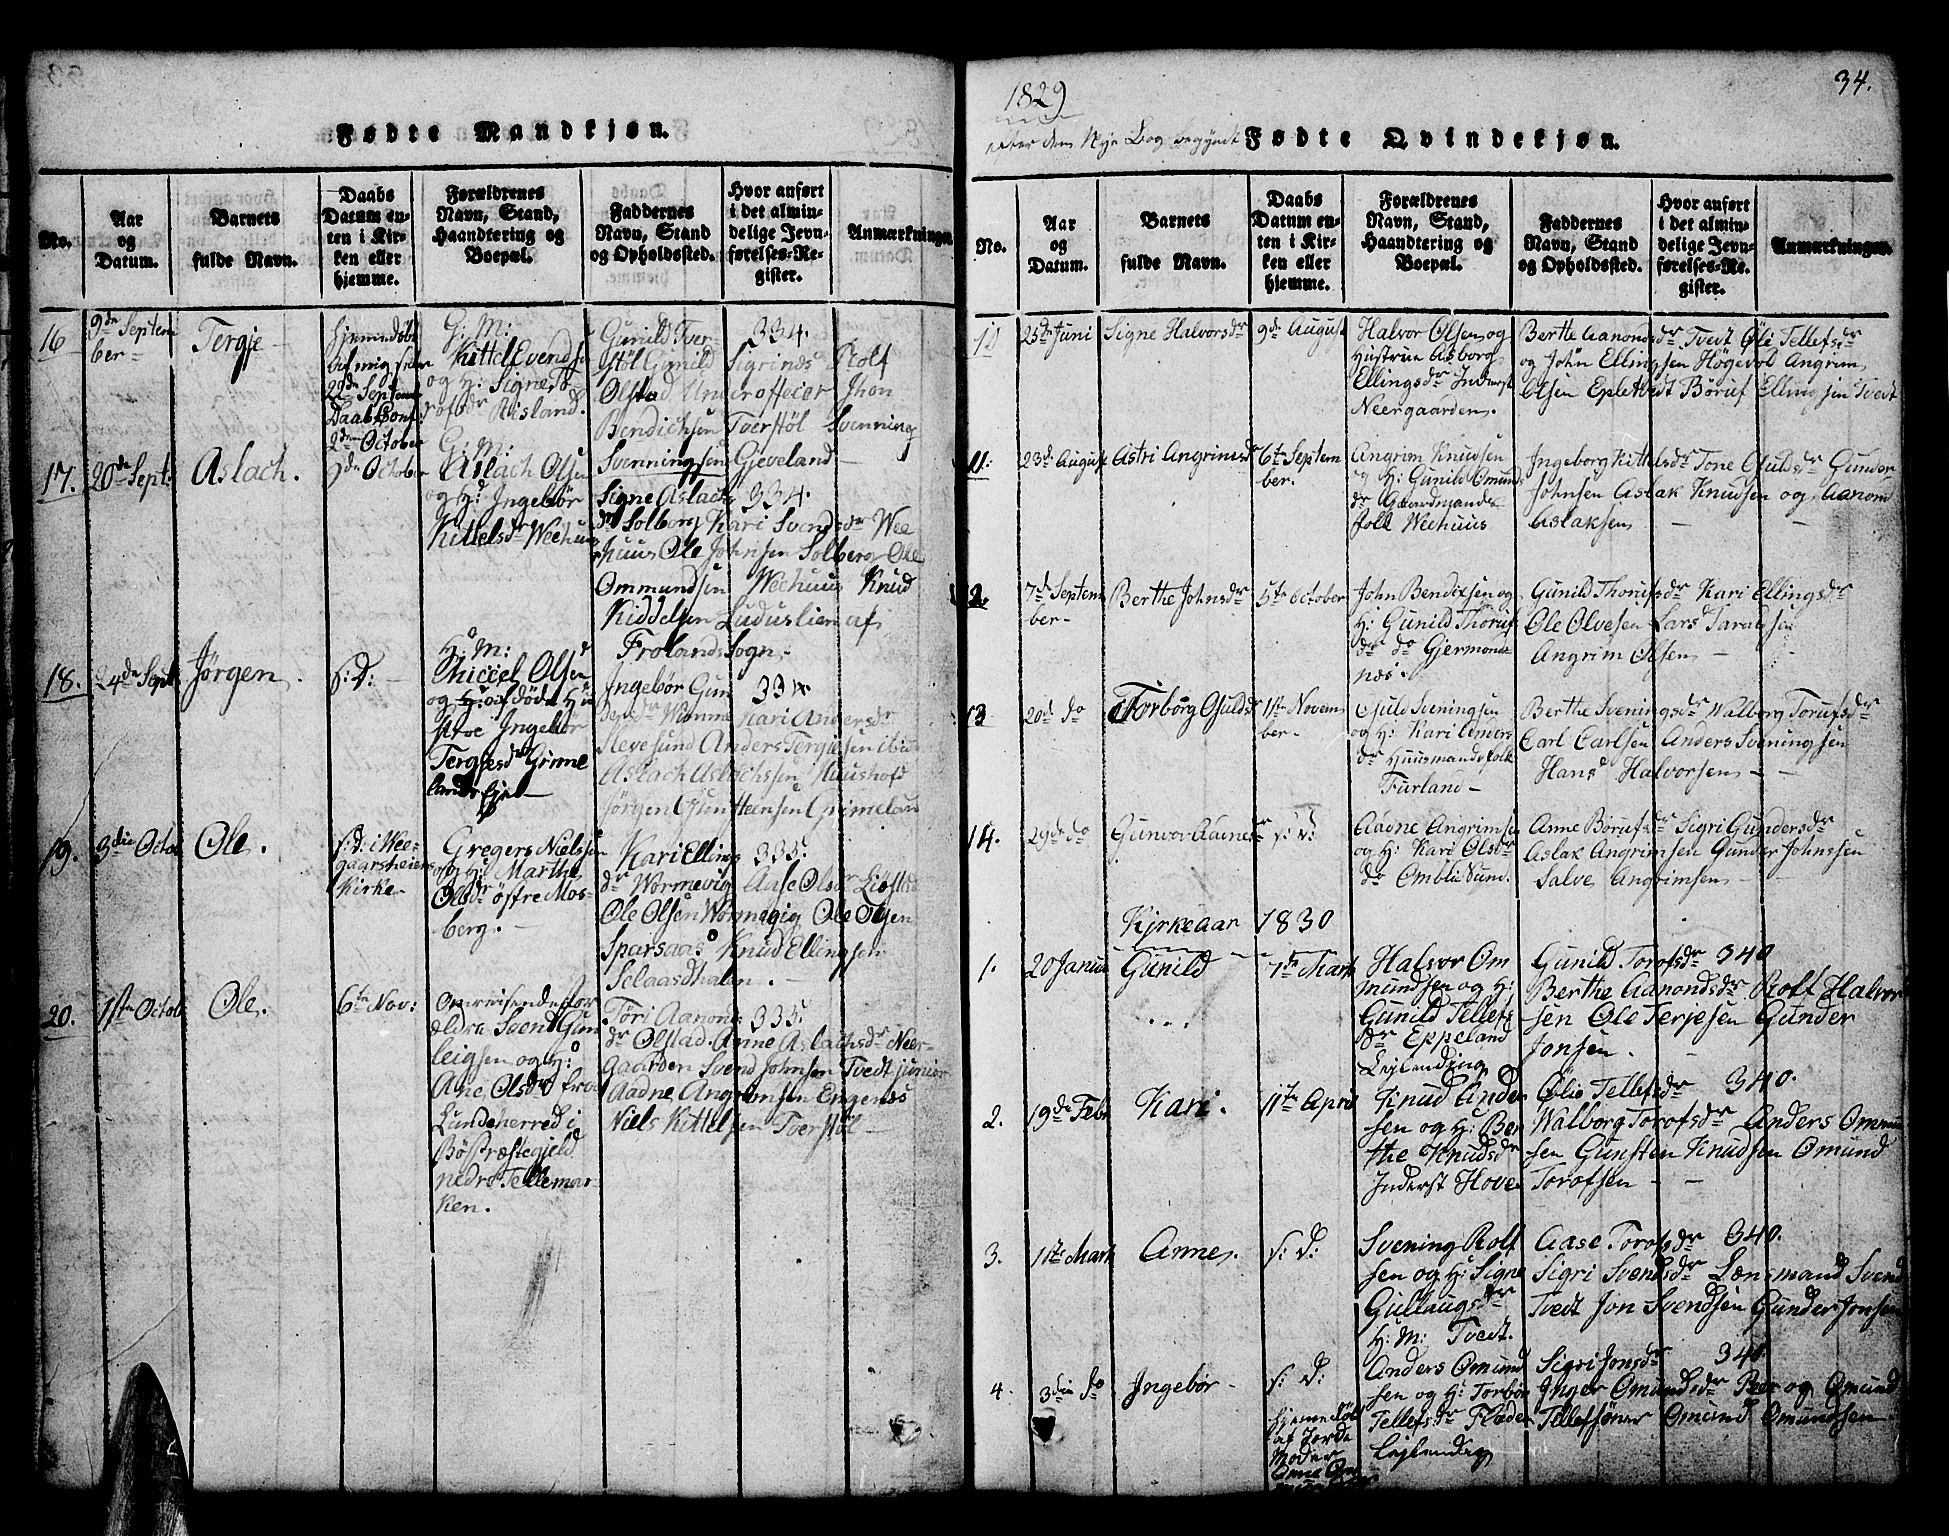 Fødte Mandkjøn.
No.
Aar
og
Datum.
Barnets
fulde Navn.
Daabs
Datum en-
ten i Kir-
ken eller
hjemme.
Forældrenes
Navn, Stand,
Haandtering og
Boepæl.
Faddernes
Navn, Stand
og Opholdssted.
Hvor anført
i det almin-
delige Jevn-
førelses-Re-
gister.
Anmærkninger.
16
9de Septem
ber-
Tergje
22de Septem
Daab Conf:
2den October
G: M:
Kittel Evendsen
og H: Signe To-
rofsdr Risland.
Gunild Tver-
støl Gunild Sigrinds Rolf
Olstad Underofficer Jhon
Bendichsen Tverstøl Svenning
Svenningsen Gjeveland
334.
17.
20de Sept:
Aslach.
9de October
G: M:
Aslach Olsen
og H: Ingebør
Kittelsdr Weehuus
Signe Aslachs 334.
dr Solberg Kari Svendsdr Wee
huus Ole Johnsen Solberg Ole
Ommundsen Weehuus Knud
Kiddelsen Luduslien af
Frolands Sogn.
18.
24de Sept:
Jørgen.
s: D:
H: M:
Niccel Olsen
og H: afdøde Hu
stroe Ingebør
Tergjesdr Grime
lands Eje
Ingebør Gun 334.
dersdr Wimme Kari Anders dr
Slevesund Anders Tergiesen ibid
Aslach Aslachssen Huushofd
Jørgen Steensen Grimeland
19.
3die Octob
Ole.
s: D: i Wee-
gaarsheiens
Kirke-
Gregers Nielsen
og H: Marthe
Olsdr østre Mos-
berg.
Kari Ellings 335.
dr Wormevig Aase Olsdr Liøstad
Ole Olsen Wormevig Ole Olsen
Sparsaas Knud Ellingsen
Selaasdhalen.
20.
1ste Octob
Ole.
6te Nov:
Omreisende For
ældre Svend Gun
leigsen og H:
Ane Olsdr fra
Lundeherred i
Bø Præstegjeld
nedre Tellemar-
ken.
Tøri Aanons 335.
dr Olstad. Anne Aslachsdr Neer-
gaarden Svend Johnsen Tvedt junior
Aadne Angrimsen Engenes
Niels Kittelsen Tverstøl
1829
34.
efter den Nye Bog begyndt
Fødte Qvindekjøn.
No.
Aar
og
Datum.
Barnets
fulde Navn.
Daabs
Datum en-
ten i Kir-
ken eller
hjemme.
Forældrenes
Navn, Stand,
Haandtering og
Boepæl.
Faddernes
Navn, Stand
og Opholdssted.
Hvor anført
i det almin-
delige Jevn-
førelses-Re-
gister.
Anmærkninger.
10
25de Juni
Signe Halvorsdr
9de August
Halvor Olsen og
Hustrue Asborg
Ellingsdr Inderst
Neergaarden.
Berthe Aanonsdr Tvedt Øli Tellefsdr
og John Ellingsen Høgevol Angrim
Olsen Epletvedt Børuf Ellingsen Tvedt
11.
23de August
Astri Angrimsdr
6te Septem
ber.
Angrim Knudsen
og H: Gunild Omunds
dr Gaardmands
folk Weehuus
Ingeborg Kittelsdr Tone Osuldsdr Gunder
Johnsen Aslak Knudsen og Aanond
Aslaksen
12.
7de Septem
ber-
Berthe Johnsdr
5te October
John Bendixsen og
H: Gunild Thoruf
dr do Gjermonds
næs.
Gunild Thorufsdr Kari Ellingsdr
Ole Olvesen Lars Taralsen
Angrim Olsen
13
20de do
Torborg Osuldsdr
11te Novem
ber.
Osuld Sveningsen
og H: Kari Anders
dr Huusmandsfolk
Furland
Berthe Sveningsdr Walborg Torufsdr
Carl Carlsen Anders Sveningsen
Hans Halvorsen
14.
29de do
Gunvor Aavnesdr
s: D:
Aaone Angrimsen
og H: Kari Olsdr
do Omblie Sund.
Anne Børufsdr Sigri Gundersdr
Aslak Angrimsen Gunder Johnssen
Salve Angrimsen
Kjrkeaar 1830
1.
20 Janua
Gunild
7de Marts
Halvor Om
mundsen og H:
Gunild Tellefs
dr Eppeland
Lejlending
Gunild Torofsdr 340
Berthe Aanondsdr Rolf Halvor
sen Ole Terjesen Gunder
Jonsen.
2.
19de Febr
Kari.
11te April
Knud Ander
sen og H: Ber
the Knudsdr
Inderst Hove
Ølio Tellefsdr 340.
Walborg Torofsdr Anders Omun
sen Gunsten Knudsen Omund
Torofsen
3.
1ste Marts
Anne.
s: D:
Svening Rolf
sen og H: Signe
Gullaugsdr
H: M: Tvedt.
Aase Torofsdr 340.
Sigri Svendsdr Lensmand Svend
Tvedt Jon Svendsen Gunder Jonsen
4.
3die do
Ingebør
s: D:
Hjemmedøbt
af Jorde
Moder
Anders Omund
sen og H: Torbør
Tellefsdr Fladen
Lejlending
Sigri Jonsdr 340.
Inger Omundsdr Peer og Omund
Tellefsøner Omund Omundsen